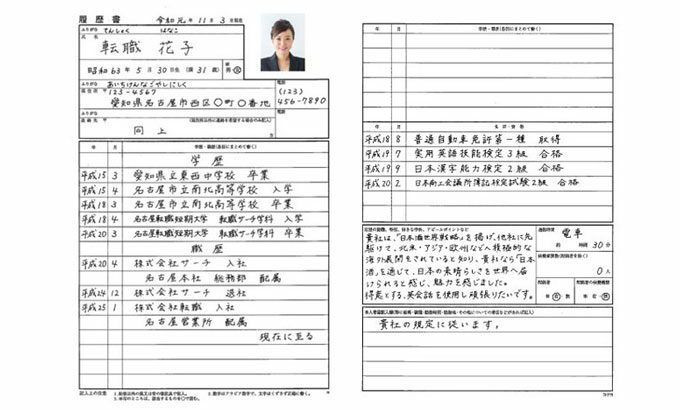 履歴書 令和元年11月3日現在
ふりがな てんしょく はなこ
氏名
転職 花子
昭和63年5月30日生(満31歳) 男・女
ふりがな あいちけんなごやしにしく
現住所 〒 123-4567
愛知県名古屋市西区○町○番地
電話
(123)
456-7890
ふりがな
連絡先 〒 (現住所以外に連絡を希望する場合のみ記入)
同上
電話
年 月 学歴・職歴(各別にまとめて書く)
学歴
平成15 3 愛知県立東西中学校 卒業
平成15 4 名古屋市立南北高等学校 入学
平成18 3 名古屋市立南北高等学校 卒業
平成18 4 名古屋転職短期大学 転職サーチ学科 入学
平成20 3 名古屋転職短期大学 転職サーチ学科 卒業
職歴
平成20 4 株式会社サーチ 入社
名古屋本社 総務部 配属
平成24 12 株式会社サーチ 退社
平成25 1 株式会社転職 入社
名古屋営業所 配属
現在に至る
記入上の注意
年 月 学歴・職歴(各別にまとめて書く)
年 月 免許・資格
平成18 8 普通自動車免許第一種 取得
平成19 7 実用英語技能検定3級 合格
平成19 9 日本漢字能力検定2級 合格
平成20 2 日本商工会議所簿記検定試験2級 合格
貴社は、「日本酒世界戦略」を掲げ、他社に先
駆けて、北米・アジア・欧州などへ積極的な
海外展開をされていると知り、貴社なら「日本
酒」を通じて、日本の素晴らしさを世界へ届
けられると感じ、魅力を感じました。
得意とする、英会話を使用し頑張りたいです。
通勤時間
電車
約 時間 30分
扶養家族数(配偶者を除く)
0人
配偶者
有・無
配偶者の扶養義務
有・無
貴社の規定に従います。